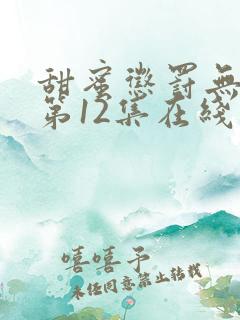 甜蜜懲罰無
第12集在綫
嘻嘻予
未经同意禁止转载